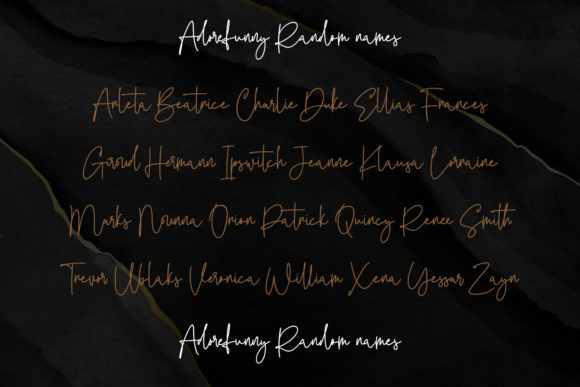 Adorefunny Random names
Arleta Beatrice Charlie Duke Ellias Frances
Giroud Hermann Ipswitch Jeanne Klausa Lorraine
Marks Nounna Orion Patrick Quincy Renee Smith
Trevor Uplaks Veronica William Xena Yessar Zayn
Adorefunny Random names